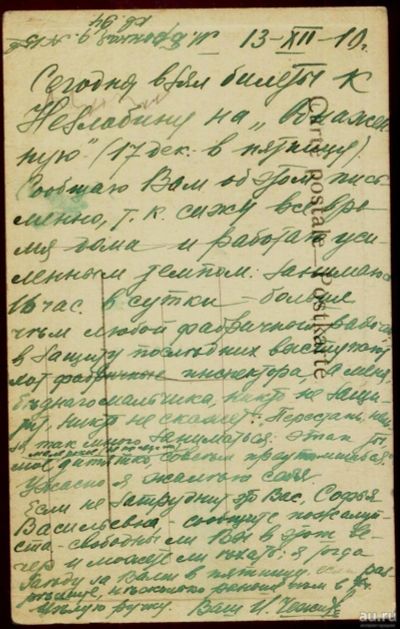 13-XII-10 г.
Сегодня взял билеты к
Незлобину на „Обнажен-
ную" (17 дек. в пятницу).
Сообщаю Вам об этом пись-
менно, т. к. сижу все вре-
мя дома и работаю уси-
ленным темпом. Занимаюсь
16 час. в сутки – больше
чѣм любой фабричный рабочий,
в защиту послѣдних выступают
хоть фабричные инспектора, за меня,
бѣднаго мальчика, никто не защи-
тит, никто не скажет: „Перестань
так много заниматься. Этак ты,
мое дитятко, совсѣм
Ужасно я жалѣю себя.
Если не затруднит это Вас, Софья
Васильевна, сообщите пожалуй-
ста – свободны ли Вы в этот ве-
чер и можете ли ѣхать: я тогда
заѣду за Вами в пятницу
Цѣлую ручку. Ваш И.
Carte postale – Postkarte
au.ru